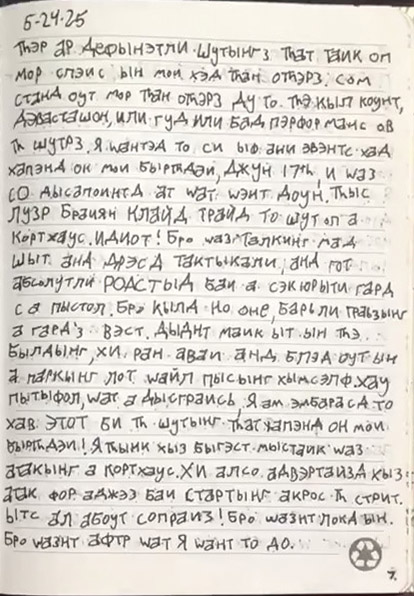 5-24-25
Тһэр ар дефынэтли шутынгз тһат таик оп
мор спэис ын мои хэд тһан отһэрз. сом
станд оут мор тһан отһэрз ду то тһэ кыл коунт,
дэвасташон, или гуд или бад пэрформанс ов
тһ шутрз. Я wантэд то си ыф ани эвэнтс хад
хапэнд он мои бырthдэи, Джун 17th, и wаз
со дысапоинтд ат wат wэнт доун. Тһыс
лузр Браиян Клаид траид то шут оп а
кортхаус. идиот! Бро wаз талкинг мад
шыт анд дрэсд тактыкали, анд гот
абсолутли РОДСТЫД баи а сэкюрыти гард
с а пыстол. Бро кыла но оне, барьли граьзынг
а гард'з вэст. дыднт маик ыт ын тһэ
былдынг, хи ран аваи анд блэд оут ын
а паркынг лот wаил пысынг хымсэлф. хау
пытыфол, wат а дысграись, Я ам эмбарасд то
хав этот би тһ шутынг тһат хапэнд он мои
бырthдэи! Я тһынк хыз быгэст мыстаик wаз
атакынг а кортхаус. Хи алсо адвэртаизд хыз
атак фор аджэз баи стартынг акрос тһ стрит.
ытс ал абоут сопраиз! Бро wазнт локд ын.
Бро wазнт афтр wат Я wант то до.
7.